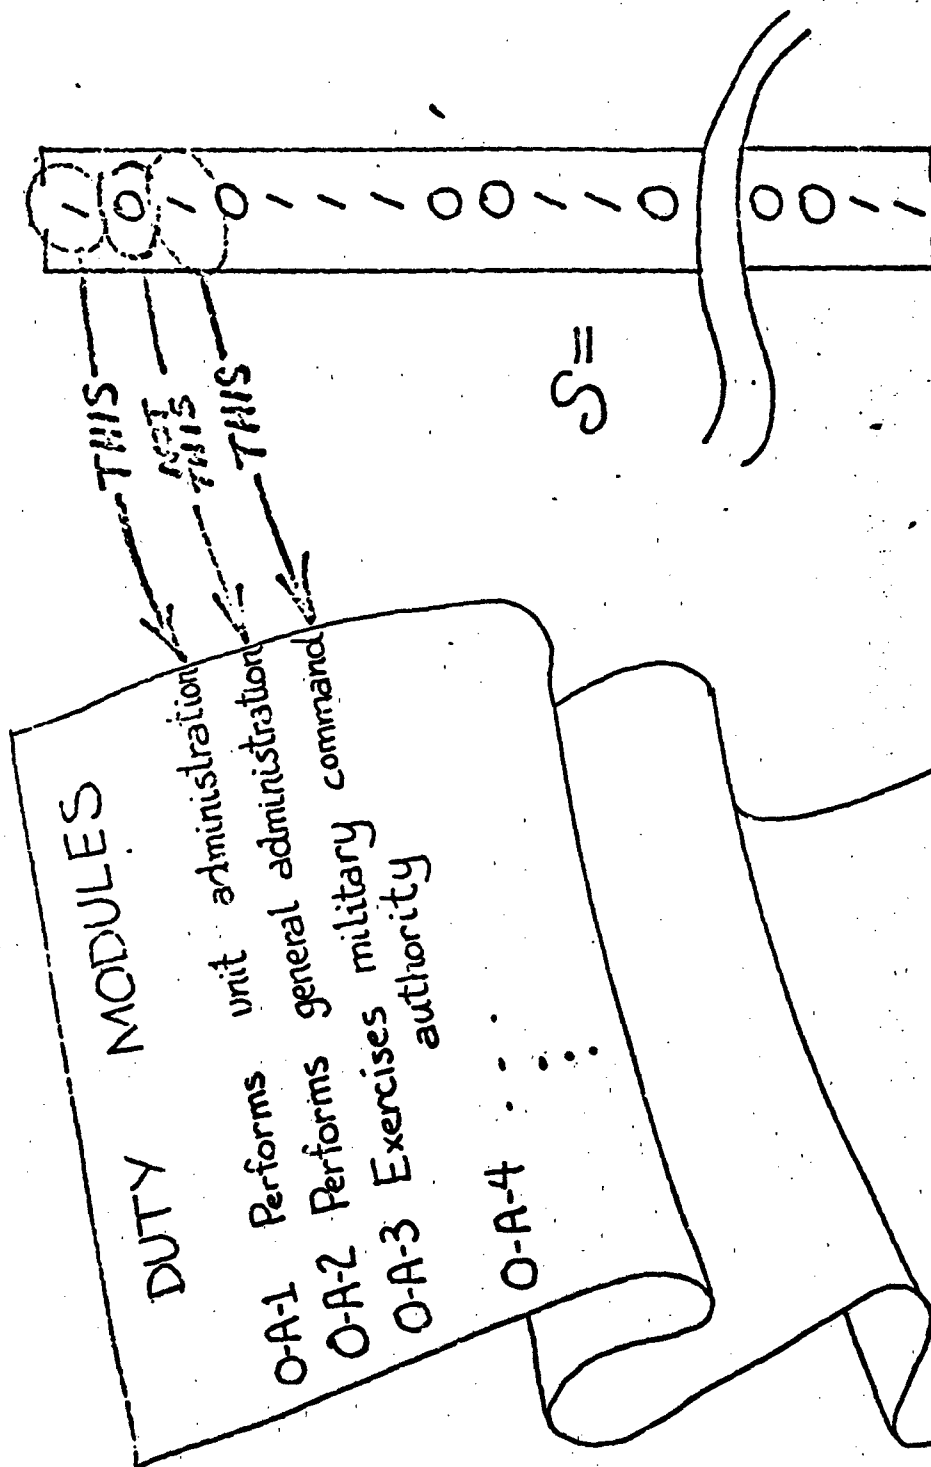 DUTY MODULES
O-A-1 Performs unit administration
O-A-2 Performs general administration
O-A-3 Exercises military command
authority
O-A-4 . . .
THIS
NOT
THIS
THIS
S =
1
0
1
0
1
1
1
0
0
1
1
0
0
0
1
1